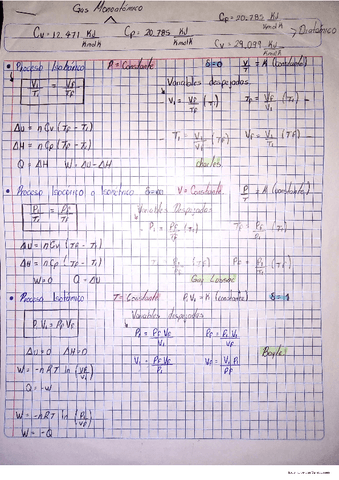 Gas Monoatómico
Cv = 12.471 KJ/KmolK   Cp = 20.785 KJ/KmolK
Cp = 20.785 KJ/KmolK
Cv = 29.099 KJ/KmolK   Diatómico
• Proceso Isobárico   P = Constante   δ=0   V/T = K (constante)
Vi/Ti = Vf/Tf
Variables despejadas
V₁ = Vf/Tf (T₁)   Tf = Vf/V₁ (T₁)
T₁ = V₁/Vf (Tf)   Vf = V₁/T₁ (Tf)
ΔU = nCv (Tf - Ti)
ΔH = nCp (Tf - Ti)
Q = ΔH   W = ΔU - ΔH
charles
• Proceso Isocorico o Isométrico   V = Constante   P/T = K (constante)
Pi/Ti = Pf/Tf
Variables Despejadas
P₁ = Pf/Tf (T₁)   Tf = Pf/P₁ (T₁)
ΔU = nCv (Tf - Ti)
ΔH = nCp (Tf - Ti)
T₁ = P₁/Pf (Tf)   Pf = P₁/T₁ (Tf)
W = 0   Q = ΔU
Gay Lussac
• Proceso Isotérmico   T = Constante   P₁V₁ = K (constante)   δ = 1
P₁V₁ = PfVf
Variables despejadas
P₁ = PfVf/V₁   Pf = P₁V₁/Vf
V₁ = PfVf/P₁   Vf = V₁P₁/Pf
ΔU = 0   ΔH = 0
Boyle
W = -nRT ln (Vf/V₁)
Q = -W
W = -nRT ln
W = -Q